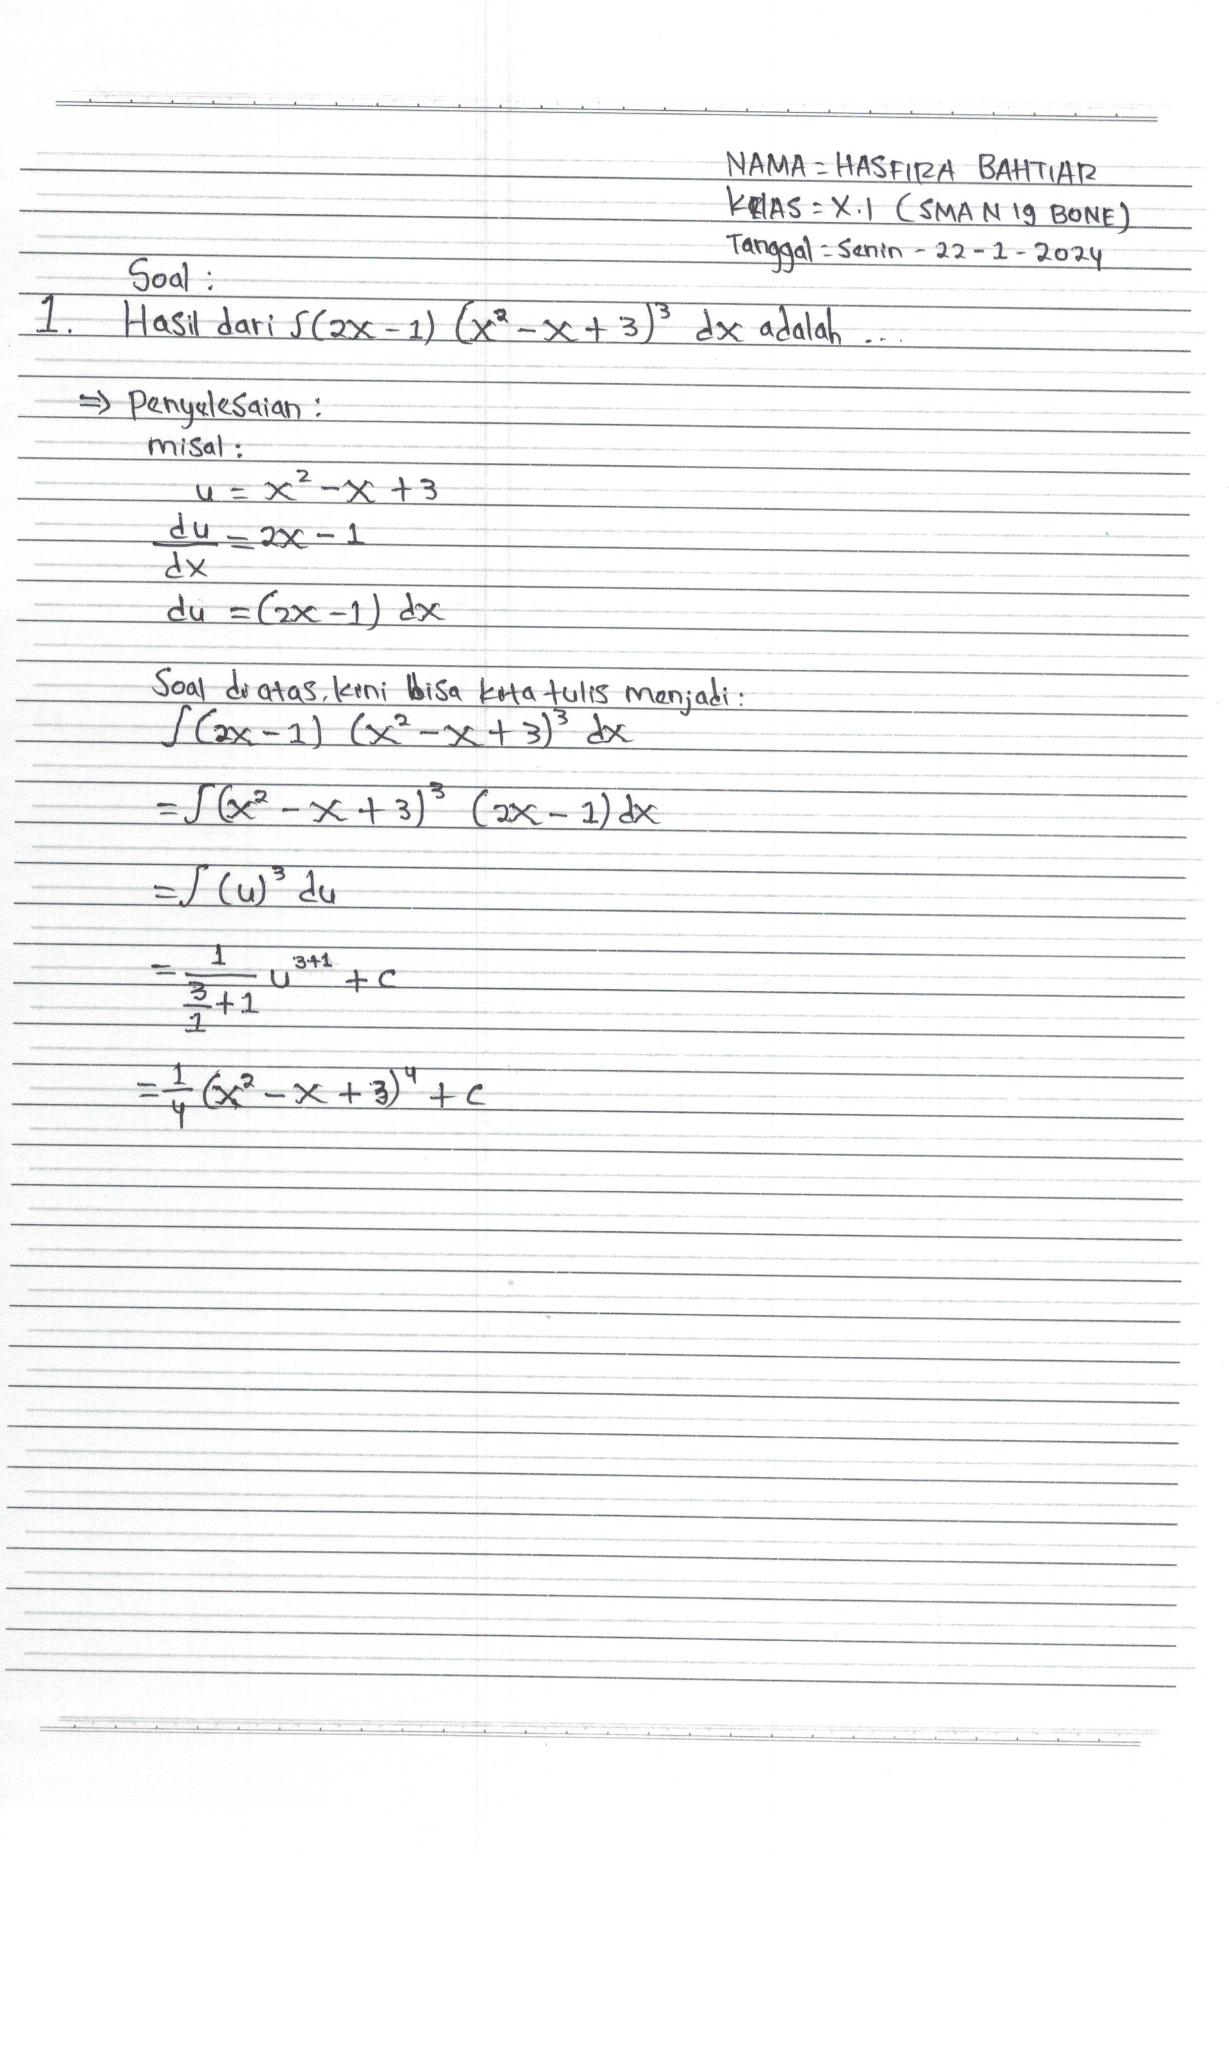 NAMA = HASFIRA BAHTIAR
KELAS = X.1 (SMA N 19 BONE)
Tanggal = Senin - 22 - 1 - 2024
Soal :
1. Hasil dari ∫(2x - 1) (x² - x + 3)³ dx adalah ...
⇒ Penyelesaian :
misal :
u = x² - x + 3
du/dx = 2x - 1
du = (2x - 1) dx
Soal di atas, kini bisa kita tulis menjadi :
∫(2x - 1) (x² - x + 3)³ dx
= ∫(x² - x + 3)³ (2x - 1) dx
= ∫ (u)³ du
= 1/(3/1 + 1) u³⁺¹ + c
= 1/4 (x² - x + 3)⁴ + c